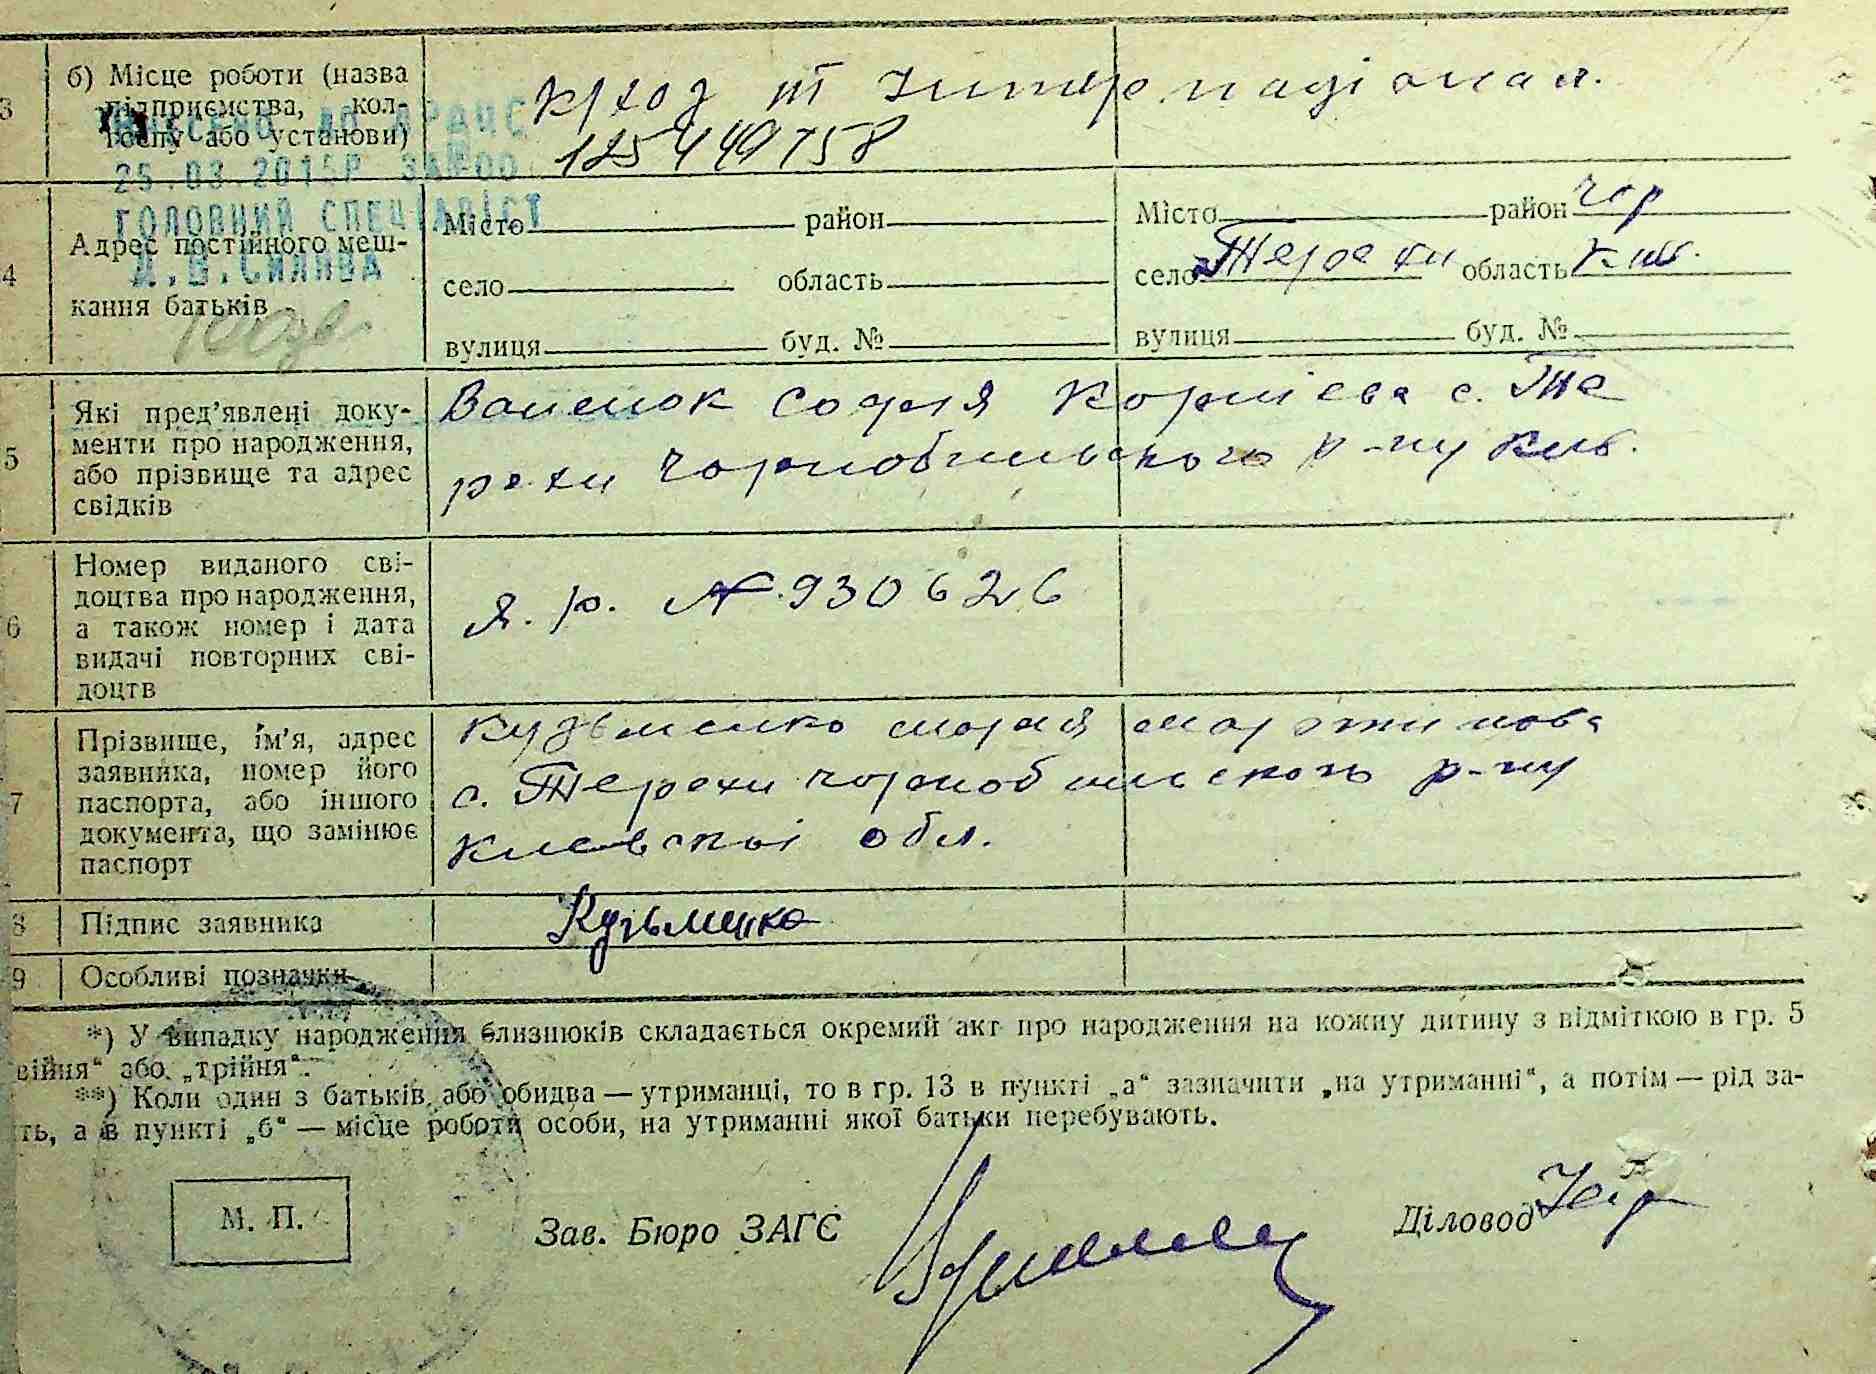 3 б) Місце роботи (назва
підприємства, кол-
госпу або установи)
к/хоз ІІІ Інтернаціонал.
125449758
25.03.2015Р
ГОЛОВНИЙ СПЕЦІАЛІСТ
4 Адрес постійного меш-
кання батьків
Місто район
село область
вулиця буд. №
Місто район Чор
село Терехи область Київ.
вулиця буд. №
5 Які пред'явлені доку-
менти про народження,
або прізвище та адрес
свідків
Софія Корнієва с. Те
рехи Чорнобильського р-ну Київ.
6 Номер виданого сві-
доцтва про народження,
а також номер і дата
видачі повторних сві-
доцтв
Я. р. № 930626
7 Прізвище, їм'я, адрес
заявника, номер його
паспорта, або іншого
документа, що замінює
паспорт
Кузьменко Марія Мартинова
с. Терехи Чорнобильського р-ну
Киевскої обл.
8 Підпис заявника
Кузьменко
9 Особливі позначки
*) У випадку народження близнюків складається окремий акт про народження на кожну дитину з відміткою в гр. 5
війня“ або „трійня“.
**) Коли один з батьків, або обидва — утриманці, то в гр. 13 в пункті „а“ зазначити „на утриманні“, а потім — рід за-
ть, а в пункті „б“ — місце роботи особи, на утриманні якої батьки перебувають.
М. П.
Зав. Бюро ЗАГС
Діловод